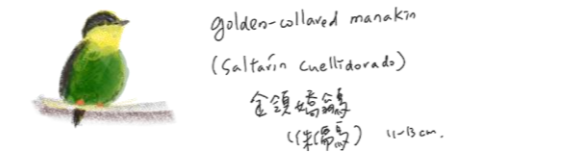 golden-collared manakin
(Saltarín cuellidorado)
金領嬌鶲
(侏儒鳥) 11-13cm.